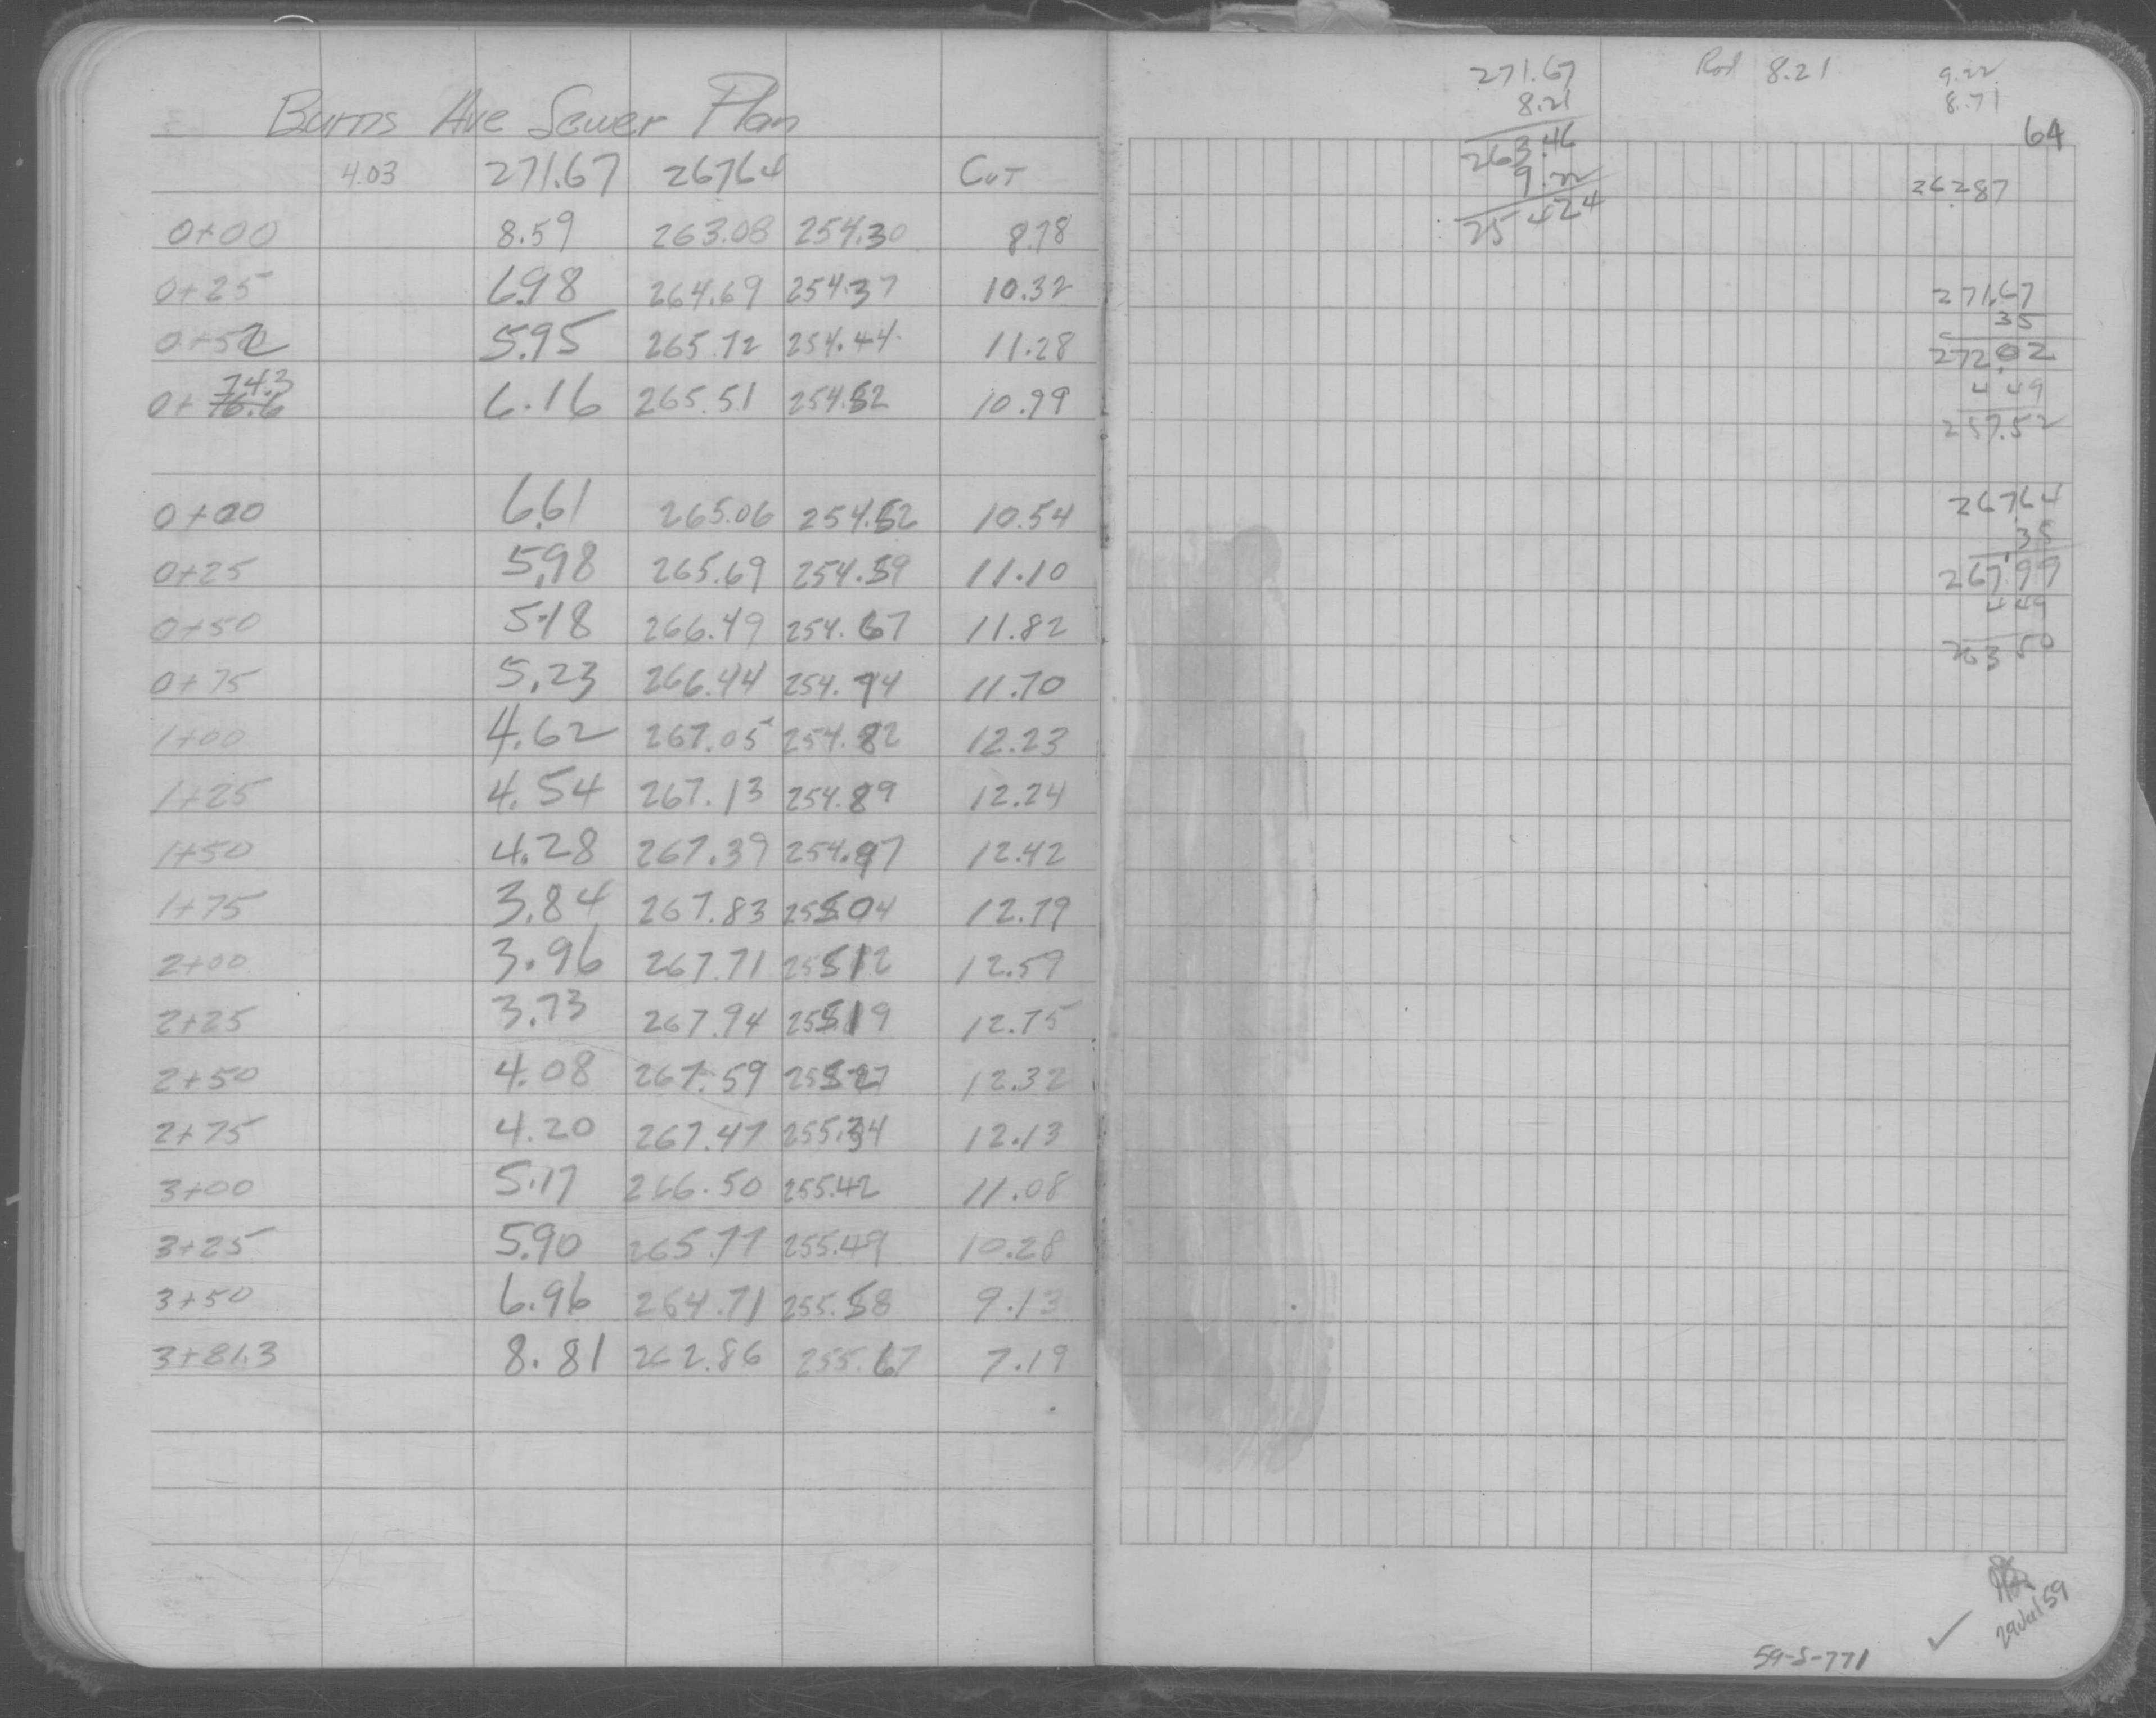 Burns Ave Sewer Plan
4.03 271.67 267.64 Cut
0+00 8.59 263.08 254.30 8.78
0+25 6.98 264.69 254.37 10.32
0+50 5.95 265.72 254.44 11.28
74.3
0+ 76.6 6.16 265.51 254.52 10.99
0+00 6.61 265.06 254.52 10.54
0+25 5.98 265.69 254.59 11.10
0+50 5.18 266.49 254.67 11.82
0+75 5.23 266.44 254.74 11.70
1+00 4.62 267.05 254.82 12.23
1+25 4.54 267.13 254.89 12.24
1+50 4.28 267.39 254.97 12.42
1+75 3.84 267.83 255.04 12.79
2+00 3.96 267.71 255.12 12.59
2+25 3.73 267.94 255.19 12.75
2+50 4.08 267.59 255.27 12.32
2+75 4.20 267.47 255.34 12.13
3+00 5.17 266.50 255.42 11.08
3+25 5.90 265.77 255.49 10.28
3+50 6.96 264.71 255.58 9.13
3+81.3 8.81 262.86 255.67 7.19
271.67
8.21
263.46
9.22
254.24
Rod 8.21
9.22
8.71
64
262.87
271.67
35
272.02
4.49
267.52
267.64
.35
267.99
4.49
263.50
29 Jul 59
59-S-771